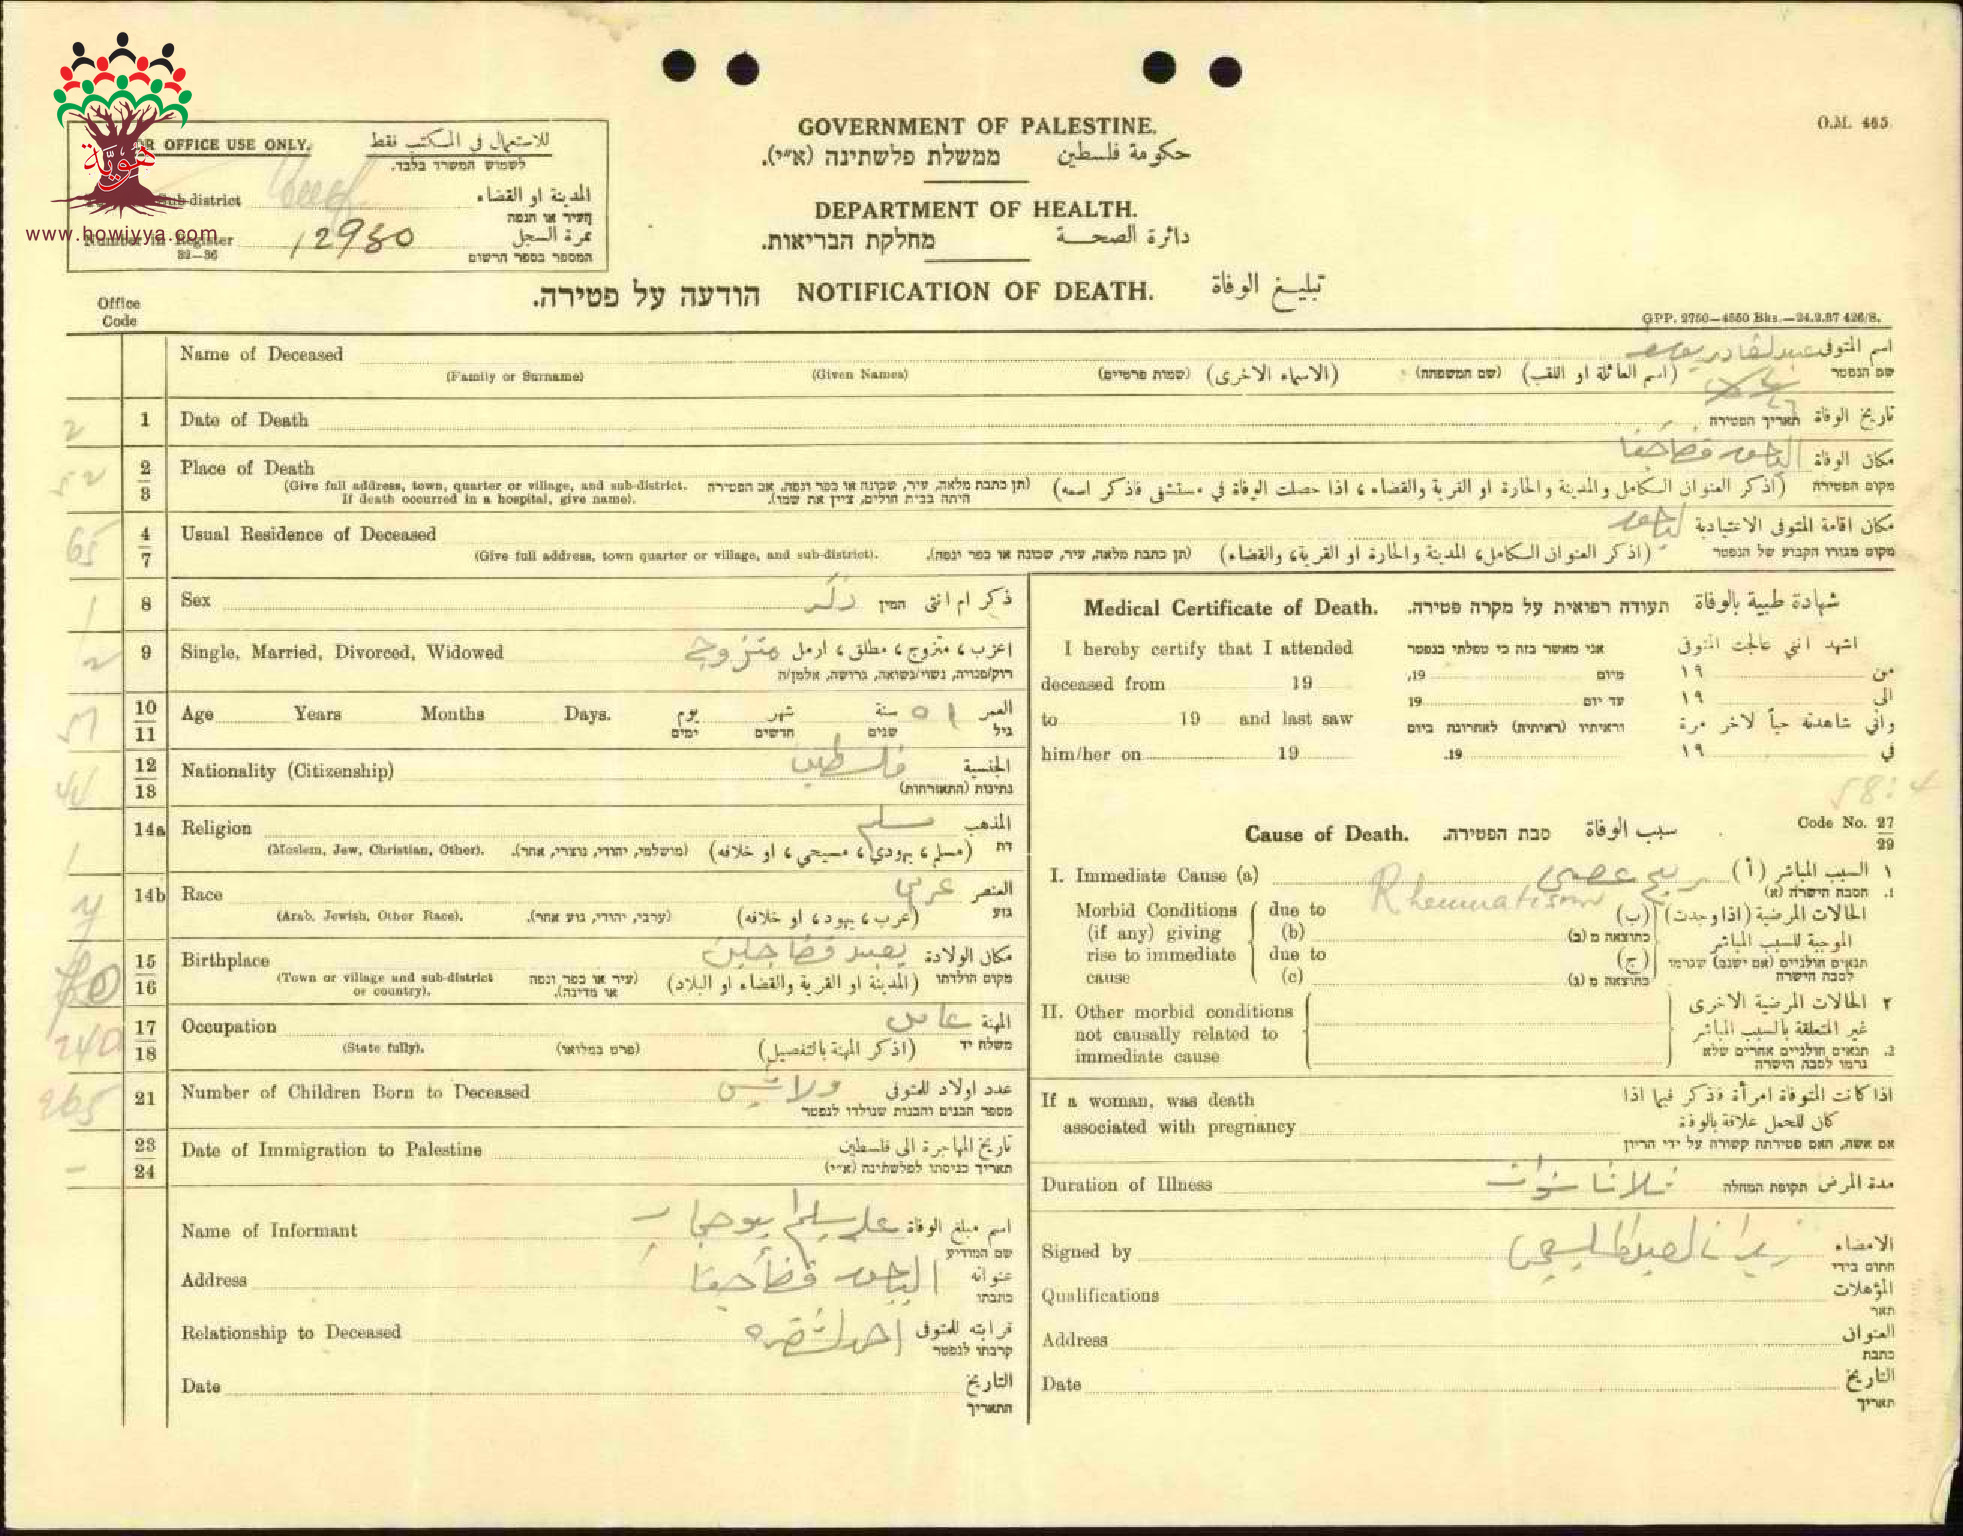 هويّة
www.howiyya.com
O.M. 465.
GOVERNMENT OF PALESTINE.
ממשלת פלשתינה (א״י). حكومة فلسطين
DEPARTMENT OF HEALTH.
מחלקת הבריאות. دائرة الصحة
OR OFFICE USE ONLY. للاستعمال في المكتب فقط
לשמוש המשרד בלבד.
Sub-district المدينة او القضاء
העיר או הנפה
Number in Register 12980 نمرة السجل
32—36 המספר בספר הרשום
הודעה על פטירה. NOTIFICATION OF DEATH. تبليغ الوفاة
Office Code
GPP. 2750—4550 Bks.—24.2.37 426/S.
Name of Deceased عبدالقادر يوسف اسم المتوفى
שם הנפטר
(Family or Surname) (Given Names) (שמות פרטיים) (الاسماء الاخرى) (שם המשפחה) (اسم العائلة او اللقب)
2 1 Date of Death תאריך הפטירה تاريخ الوفاة
52 2 3 Place of Death الياجور قضا حيفا مكان الوفاة
מקום הפטירה
(Give full address, town, quarter or village, and sub-district. If death occurred in a hospital, give name).
(תן כתבת מלאה, עיר, שכונה או כפר ונפה, אם הפטירה היתה בבית חולים, ציין את שמו).
(اذكر العنوان الكامل والمدينة والحارة او القرية والقضاء، اذا حصلت الوفاة في مستشفى فاذكر اسمه)
65 4 7 Usual Residence of Deceased ياجور مكان اقامة المتوفى الاعتيادية
מקום מגורו הקבוע של הנפטר
(Give full address, town quarter or village, and sub-district). (תן כתבת מלאה, עיר, שכונה או כפר ונפה). (اذكر العنوان الكامل، المدينة والحارة او القرية، والقضاء)
1 8 Sex ذكر המין ذكر ام انثى
2 9 Single, Married, Divorced, Widowed متزوج اعزب، متزوج، مطلق، ارمل
רוק/פנויה, נשוי/נשואה, גרושה, אלמן/ה
51 10 11 Age Years Months Days. يوم شهر سنة ٥١ العمر
ימים חדשים שנים גיל
44 12 13 Nationality (Citizenship) فلسطين الجنسية
נתינות (התאזרחות)
1 14a Religion مسلم المذهب
דת
(Moslem, Jew, Christian, Other). (מושלמי, יהודי, נוצרי, אחר). (مسلم، يهودي، مسيحي، او خلافه)
14b Race عربي العنصر
גזע
(Arab, Jewish, Other Race). (ערבי, יהודי, גזע אחר). (عرب، يهود، او خلافه)
15 16 Birthplace يعبد قضا جنين مكان الولادة
מקום הולדתו
(Town or village and sub-district or country). (עיר או כפר ונפה או מדינה). (المدينة او القرية والقضاء او البلاد)
240 17 18 Occupation عامل المهنة
משלח יד
(State fully). (פרט במלואו) (اذكر المهنة بالتفصيل)
265 21 Number of Children Born to Deceased عدد اولاد للمتوفى
מספר הבנים והבנות שנולדו לנפטר
– 23 24 Date of Immigration to Palestine تاريخ المهاجرة الى فلسطين
תאריך כניסתו לפלשתינה (א״י)
Name of Informant اسم مبلغ الوفاة
שם המודיע
Address الياجور قضا حيفا عنوانه
כתבתו
Relationship to Deceased قرابته للمتوفى
קרבתו לנפטר
Date التاريخ
התאריך
Medical Certificate of Death. תעודה רפואית על מקרה פטירה. شهادة طبية بالوفاة
I hereby certify that I attended אני מאשר בזה כי טפלתי בנפטר اشهد انني عالجت المتوفى
deceased from 19 מיום 19, من ١٩
עד יום 19 الى ١٩
to 19 and last saw וראיתיו (ראיתיה) לאחרונה ביום واني شاهدته حياً لاخر مرة
him/her on 19 19. في ١٩
58:4
Cause of Death. סבת הפטירה. سبب الوفاة Code No. 27 29
I. Immediate Cause (a) ريح عصبي السبب المباشر (أ) ١
Rheumatism הסבה הישרה (א) .1
Morbid Conditions (if any) giving rise to immediate cause
due to (b) כתוצאה מ (ב) (ب)
due to (c) כתוצאה מ (ג) (ج)
الحالات المرضية (اذا وجدت) الموجبة للسبب المباشر
תנאים חולניים (אם ישנם) שגרמו לסבה הישרה
II. Other morbid conditions not causally related to immediate cause
٢ الحالات المرضية الاخرى غير المتعلقة بالسبب المباشر
2. תנאים חולניים אחרים שלא גרמו לסבה הישרה
If a woman, was death associated with pregnancy
اذا كانت المتوفاة امرأة فذكر فيما اذا كان للحمل علاقة بالوفاة
אם אשה, האם פטירתה קשורה על ידי הריון
Duration of Illness ثلاثة سنوات תקופת המחלה مدة المرض
Signed by الامضاء
חתום בידי
Qualifications المؤهلات
תאר
Address العنوان
כתבת
Date التاريخ
תאריך